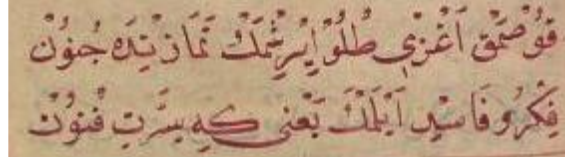 قُوصْمَقْ اَغْزِي طُلُو اِيْرِشْمَكْ نَمَازِنْدَه جُنُونْ
فِكْرُو فَاسِدِ اَيْلَمَكْ يَعْنِي كِهِ سِرَّتِ فُنُونْ